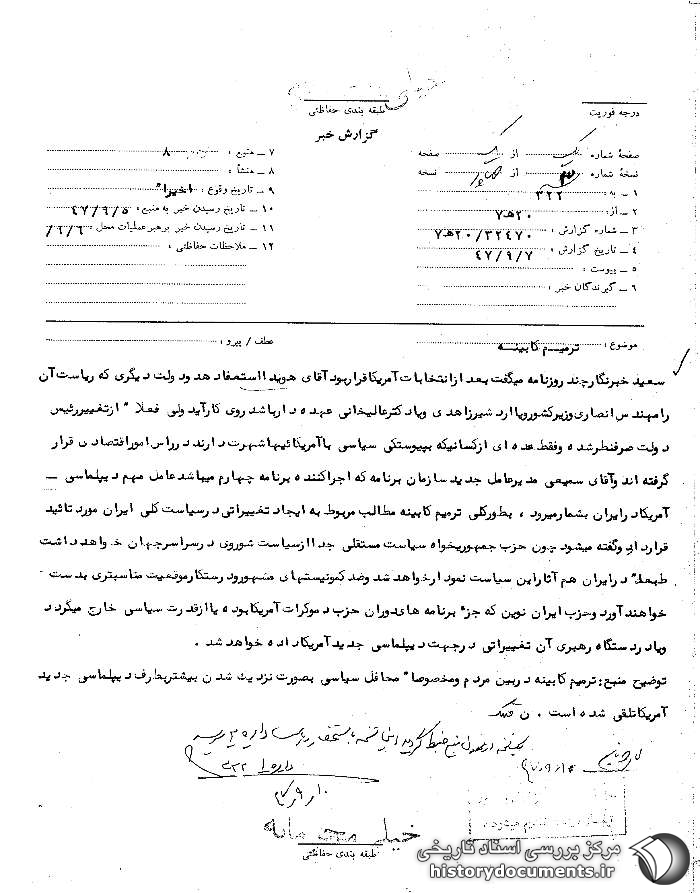 طبقه بندی حفاظتی
درجه فوریت
گزارش خبر
صفحهٔ شماره یک از یک صفحه
نسخهٔ شماره از نسخه
۱ ـ به : ۳۲۲
۲ ـ از : ۲۰ هـ ۷
۳ ـ شماره گزارش : ۳۲۴۷۰ / ۲۰ هـ ۷
۴ ـ تاریخ گزارش : ۴۷/۹/۷
۵ ـ پیوست :
۶ ـ گیرندگان خبر :
۷ ـ منبع : ۸
۸ ـ منشأ :
۹ ـ تاریخ وقوع : اخیرا"
۱۰ ـ تاریخ رسیدن خبر به منبع : ۴۷/۹/۵
۱۱ ـ تاریخ رسیدن خبر برهبر عملیات محل : ۹/۶/
۱۲ ـ ملاحظات حفاظتی :
موضوع : ترمیم کابینه
عطف / پیرو :
سعید خبرنگار چند روزنامه میگفت بعد از انتخابات آمریکا قرار بود آقای هویدا استعفا دهد و دولت دیگری که ریاست آن
را مهندس انصاری وزیر کشور و یا اردشیر زاهدی و یا دکتر عالیخانی عهده دار باشد روی کار آید ولی فعلا " از تغییر رئیس
دولت صرفنظر شده و فقط عده ای از کسانیکه بپیوستگی سیاسی با آمریکائیها شهرت دارند در راس امور اقتصادی قرار
گرفته اند و آقای سمیعی مدیر عامل جدید سازمان برنامه که اجرا کننده برنامه چهارم میباشد عامل مهم دیپلماسی ـ
آمریکا در ایران بشمار میرود ، بطور کلی ترمیم کابینه مطالب مربوط به ایجاد تغییراتی در سیاست کلی ایران مورد تائید
قرار داد و گفته میشود چون حزب جمهوریخواه سیاست مستقلی جدا از سیاست شوروی در سراسر جهان خواهد داشت
طبعا" در ایران هم آثار این سیاست نمودار خواهد شد و ضد کمونیستهای مشهور و درستکار موقعیت مناسبتری بدست ـ
خواهند آورد و حزب ایران نوین که جز" برنامه های دوران حزب دموکرات آمریکا بوده یا از قدرت سیاسی خارج میگردد
و یا در دستگاه رهبری آن تغییراتی در جهت دیپلماسی جدید آمریکا داده خواهد شد .
توضیح منبع : ترمیم کابینه در بین مردم و مخصوصا" محافل سیاسی بصورت نزدیک شدن بیشتر بطرف دیپلماسی جدید
آمریکا تلقی شده است .
۳۲۲
۴۷/۹/۱۰
خیلی محرمانه
طبقه بندی حفاظتی
مرکز بررسی اسناد تاریخی
historydocuments.ir